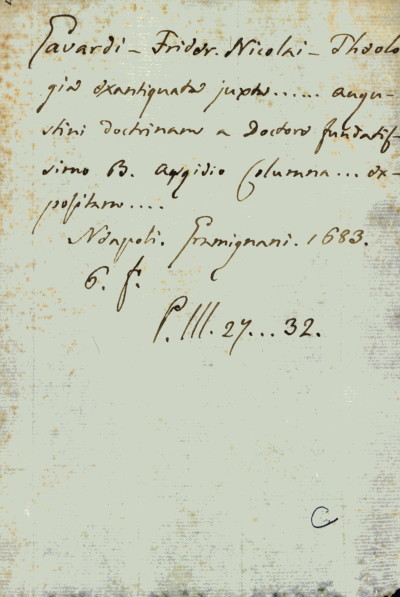 Gavardi - Frider. Nicolai - Theolo
gia exantiquata juxta...... Augu-
stini doctrinam a Doctore fundatis-
simo B. Aegidio Columna... ex-
positam....
Neapoli. Gramignani. 1683.
6. f.
P. III. 27... 32.
C